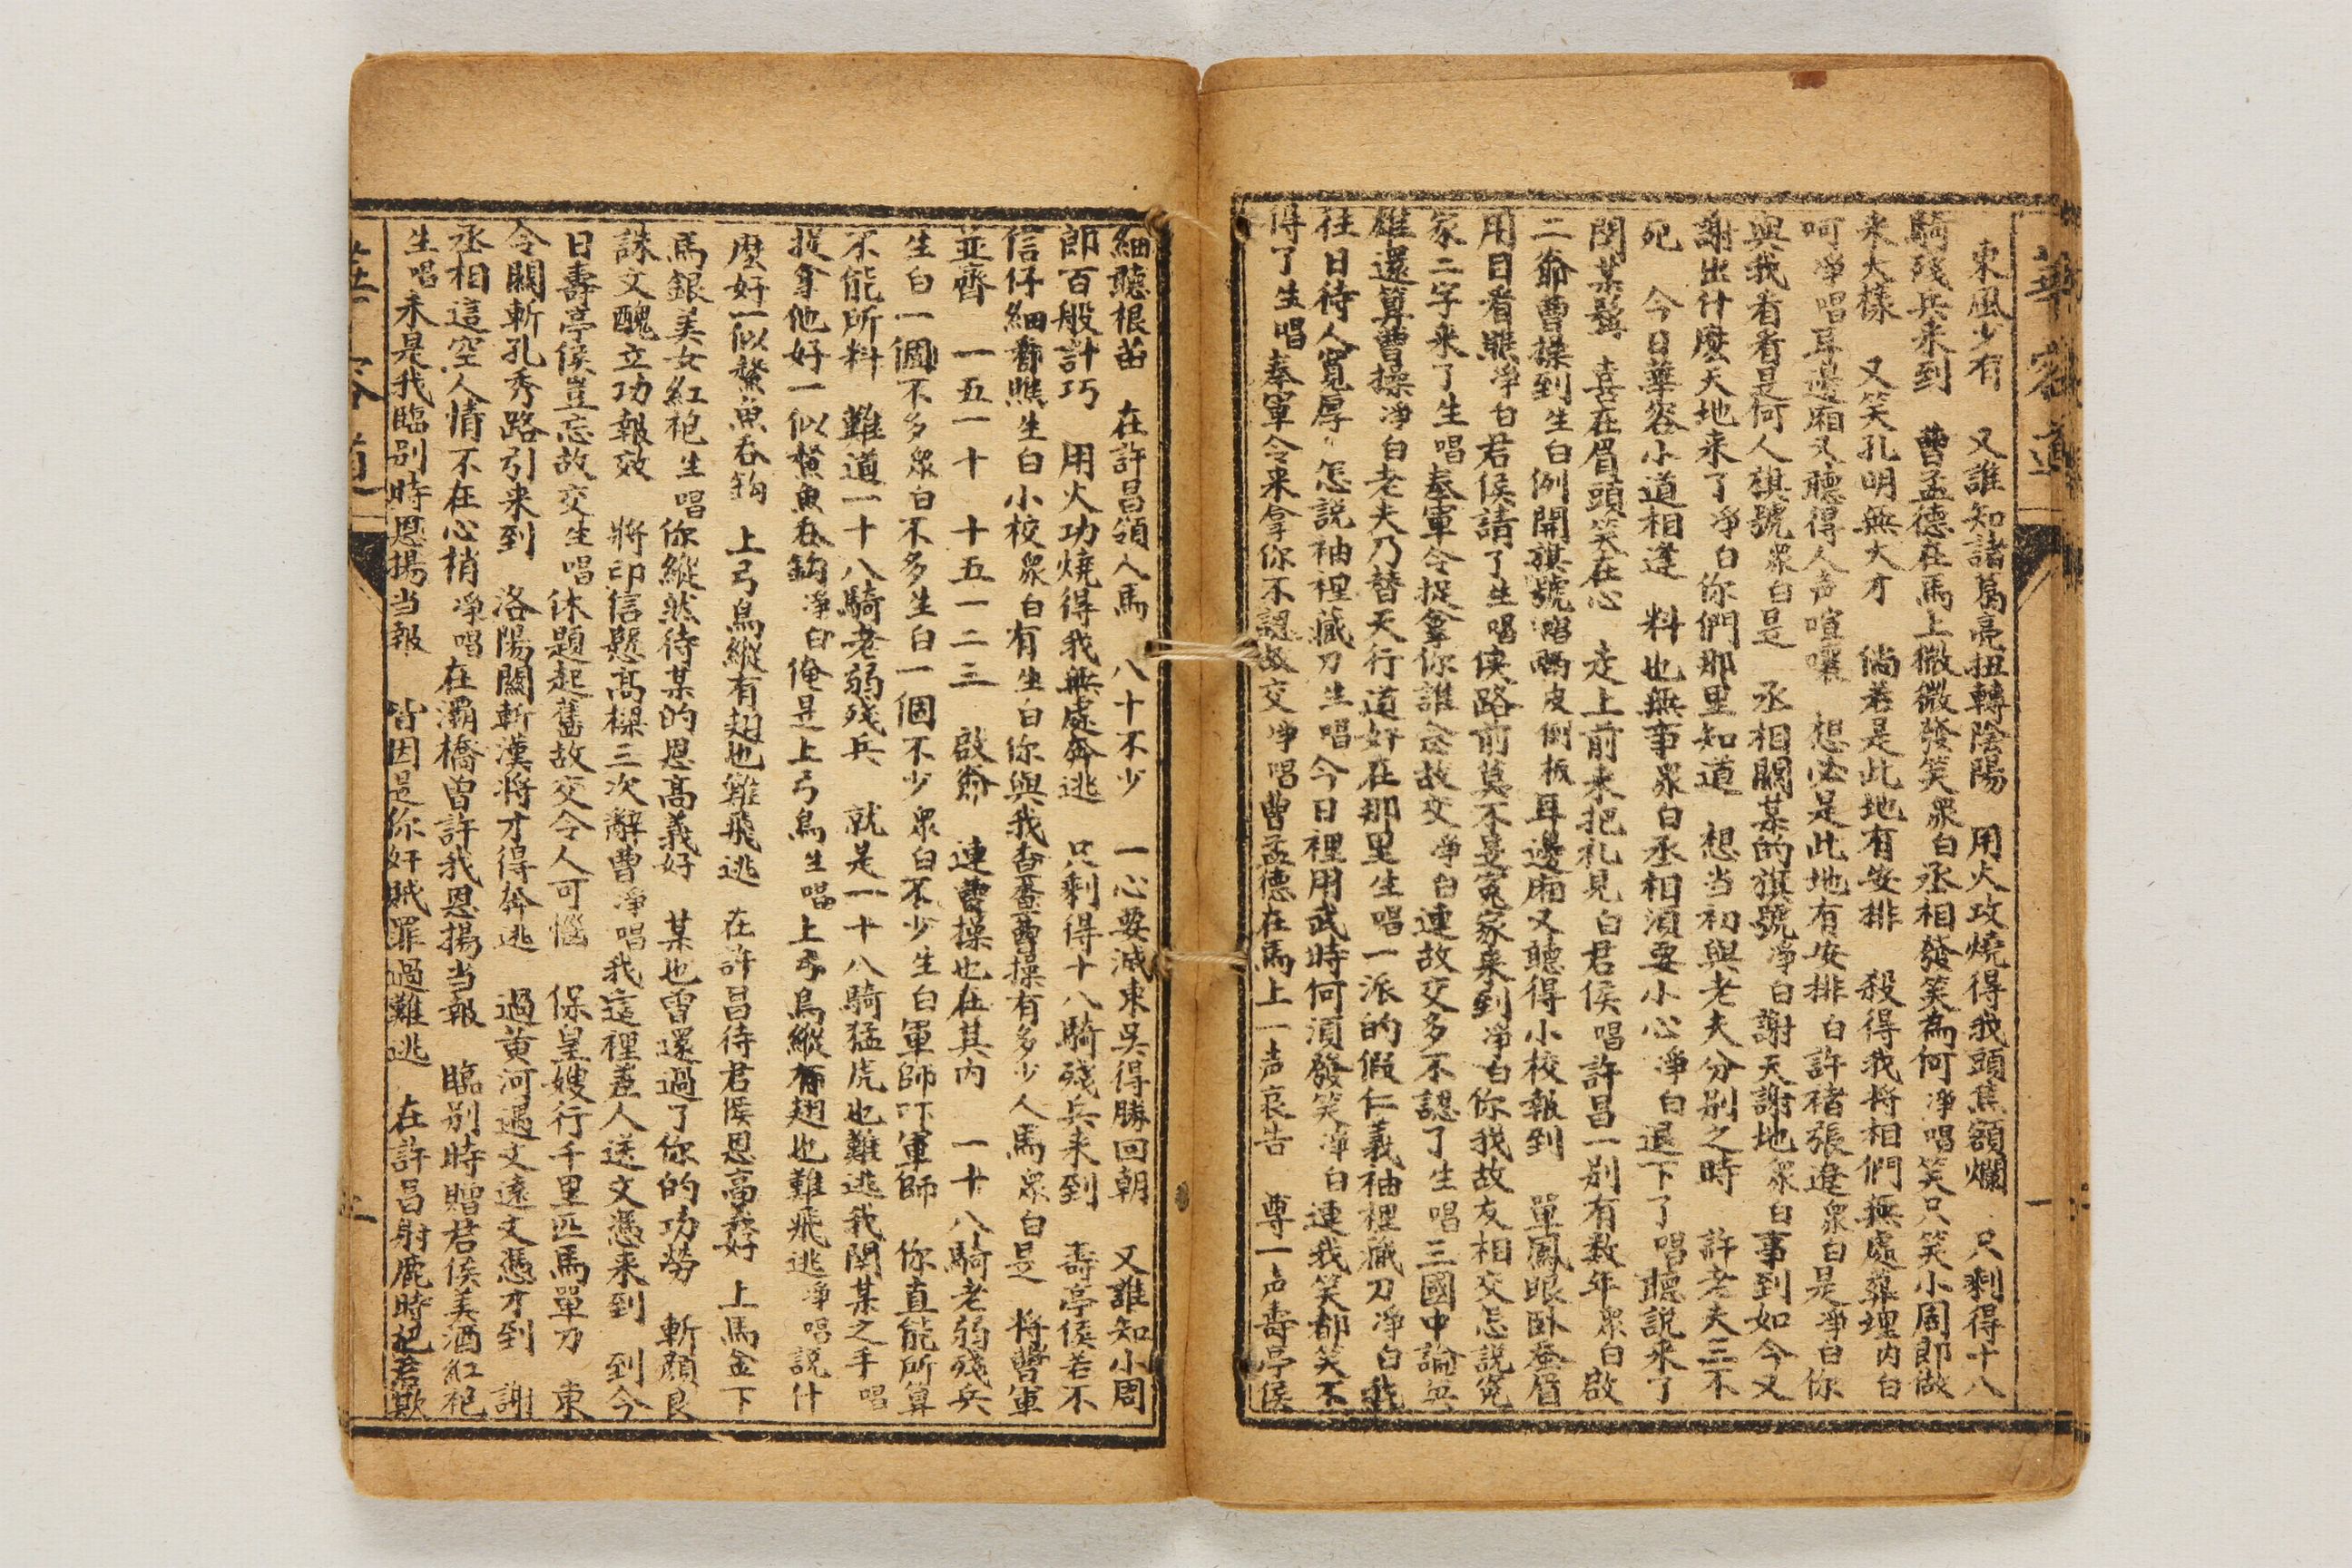 華容道
東風少有　又誰知諸葛亮扭轉陰陽　用火攻燒得我頭焦額爛　只剩得十八
騎殘兵来到　曹孟德在馬上微微發笑衆白丞相發笑為何淨唱笑只笑小周郎做
来大樣　又笑孔明無大才　倘若是此地有安排　殺得我將相們無處葬埋内白
呵淨唱耳邊廂又聽得人声喧嚷　想必是此地有安排白許褚張遼衆白是淨白你
與我看看是何人旗號衆白是　丞相関某的旗號淨白謝天謝地衆白事到如今又
謝出什麽天地来了淨白你們那里知道　想当初與老夫分别之時　許老夫三不
死　今日華容小道相逢　料也無事衆白丞相須要小心淨白退下了唱聽説来了
関某髯　喜在眉頭笑在心　走上前来把礼見白君侯唱許昌一别有数年衆白啟
二爺曹操到生白例開旗號唱嗚皮倒板耳邊廂又聽得小校報到　單鳳眼卧蚕眉
用目看瞧淨白君侯請了生唱俠路前莫不是寃家来到淨白你我故友相交怎説寃
家二字来了生唱奉軍令捉拿你誰念故交淨白連故交多不認了生唱三國中論奸
雄還算曹操淨白老夫乃替天行道好在那里生唱一派的假仁義袖裡藏刀淨白我
往日待人寬厚〃怎説袖裡藏刀生唱今日裡用武時何須發笑淨白連我笑都笑不
得了生唱奉軍令来拿你不認故交淨唱曹孟德在馬上一声哀告　尊一声壽亭侯
細聽根苗　在許昌領人馬　八十不少　一心要滅東吳得勝回朝　又誰知小周
郎百般計巧　用火功燒得我無處奔逃　只剩得十八騎殘兵来到　壽亭侯若不
信仔細看瞧生白小校衆白有生白你與我查查曹操有多少人馬衆白是　將曹軍
並齊　一五一十　十五一二三　啟爺　連曹操也在其内　一十八騎老弱殘兵
生白一個不多衆白不多生白一個不少衆白不少生白軍師吓軍師　你直能所算
不能所料　難道一十八騎老弱殘兵　就是一十八騎猛虎也難逃我関某之手唱
捉拿他好一似鰲魚吞鈎淨白俺是上弓鳥生唱上弓鳥縱有翅也難飛逃淨唱説什
麽好一似鰲魚吞鈎　上弓鳥縱有翅也難飛逃　在許昌待君侯恩高義好　上馬金下
馬銀美女紅袍生唱你縱然待某的恩高義好　某也曾還過了你的功勞　斬顏良
誅文醜立功報效　將印信懸高樑三次辭曹淨唱我這裡差人送文憑来到　到今
日壽亭侯豈忘故交生唱休題起舊故交令人可惱　保皇嫂行千里匹馬單刀　東
令關斬孔秀路引来到　洛陽關斬漢將才得奔逃　過黄河遇文遠文憑才到　謝
丞相這空人情不在心梢淨唱在灞橋曾許我恩揚当報　臨别時贈君侯美酒紅袍
生唱禾是我臨别時恩揚当報　皆因是你奸賊罪過難逃　在許昌射鹿時把君欺